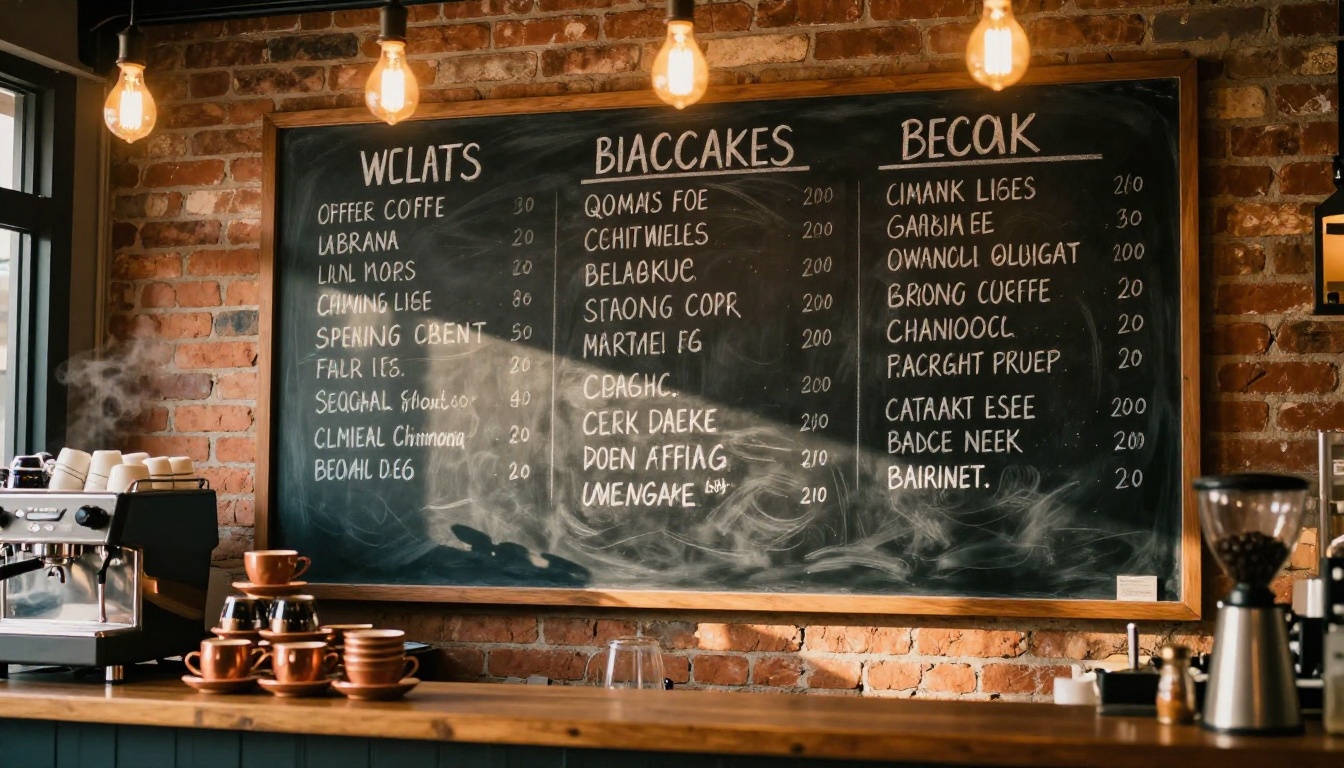 WCLATS
OFFER COFFE 30
LABRANA 20
LINL MORS 20
CHWING LIGE 30
SPENING CBENT 50
FALR IFS. 20
SEOGHAL 40
CLMIEAL Chimmona 20
BEOAHL DEG 20
BIACCAKES
QOMAS FOE 200
CCHITWELES 200
BELABKUC 200
STAONG COPR 200
MARTMEI FG 200
CBAGHC. 200
CERK DAEKE 200
DOEN AFFIAG 210
UMENGAKE 210
BECOAK
CIMANK LIGES 260
GARBHM EE 30
OWANCLI OLUIGAT 200
BRIONG CUEFFE 20
CHANIOOCL 20
P.ACRGHT PRUEP 20
CATAAKT ESEE 200
BADCE NEEK 200
BAIRINET. 20